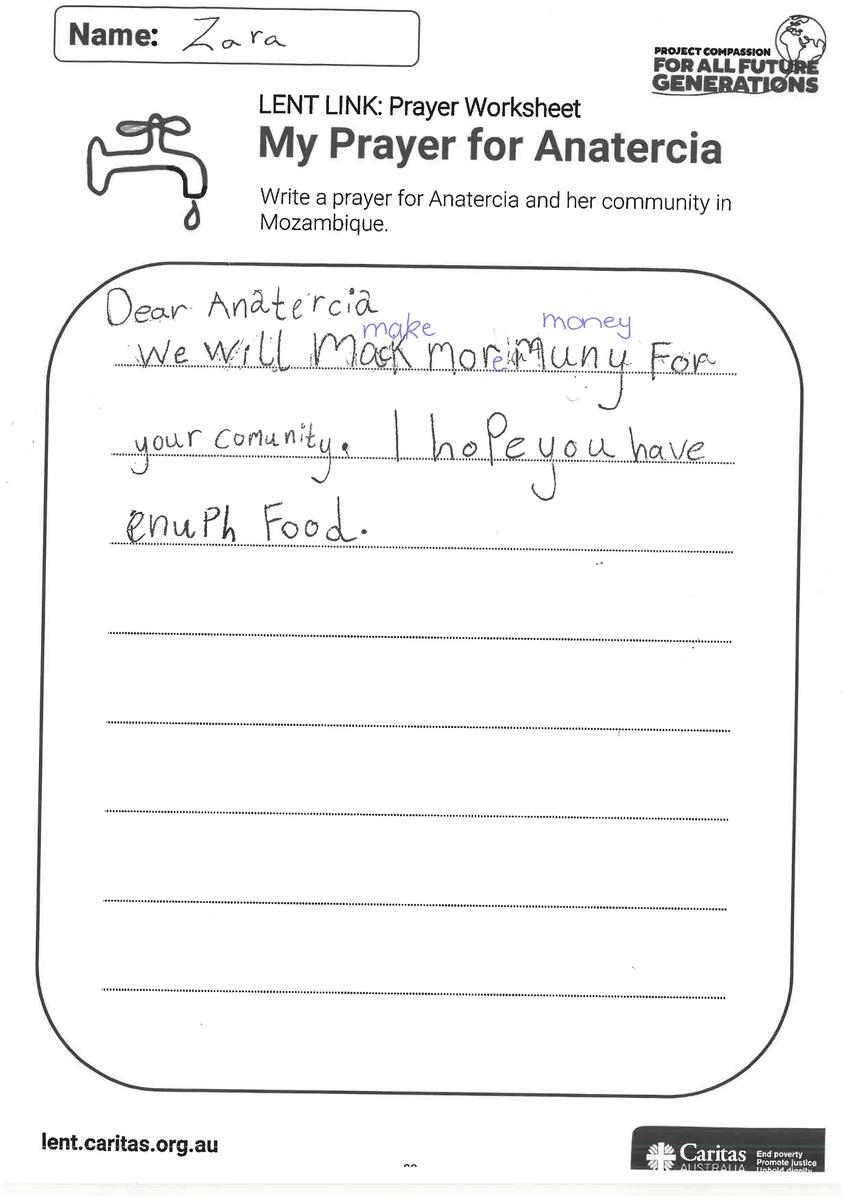 Name: Zara
PROJECT COMPASSION
FOR ALL FUTURE
GENERATIONS
LENT LINK: Prayer Worksheet
My Prayer for Anatercia
Write a prayer for Anatercia and her community in
Mozambique.
Dear Anatercia
make money
We Will Mack more Muny For
your comunity. I hope you have
enuph Food.
lent.caritas.org.au
Caritas
AUSTRALIA
End poverty
Promote justice
Uphold dignity